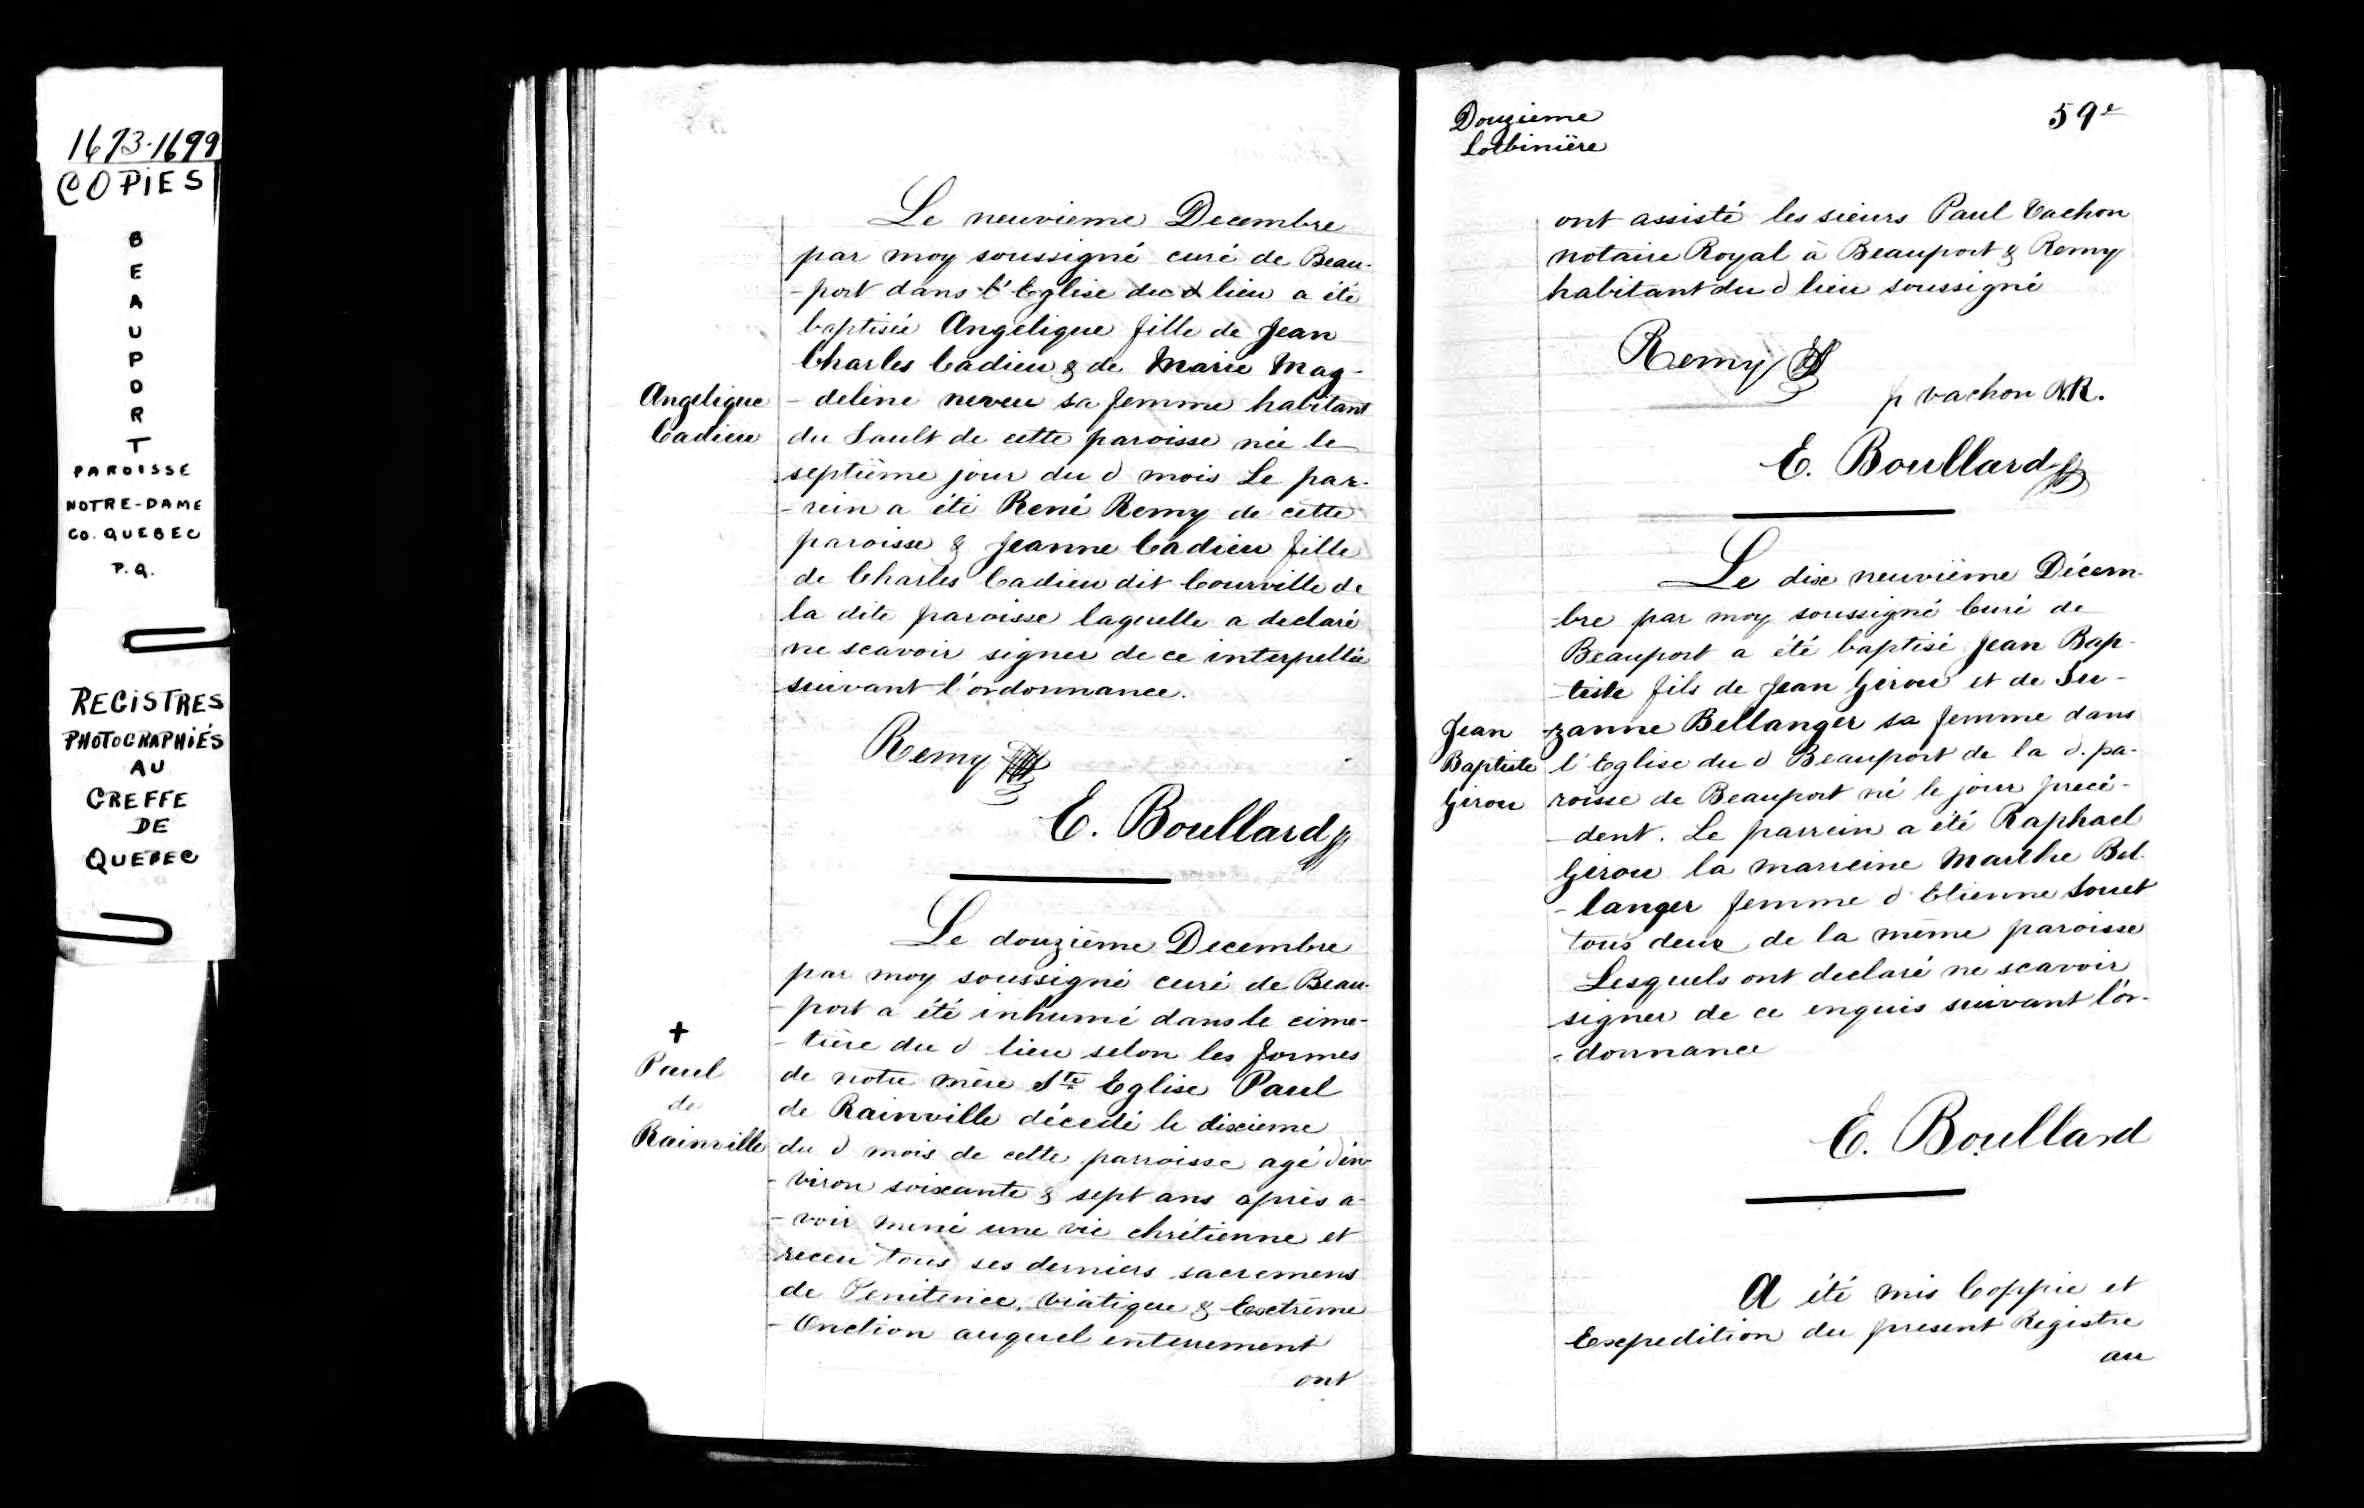 1673-1699
COPIES
B
E
A
U
P
O
R
T
PAROISSE
NOTRE-DAME
CO. QUEBEC
P.Q.
REGISTRES
PHOTOGRAPHIÉS
AU
GREFFE
DE
QUEBEC
Le neuvieme Decembre
par moy soussigné curé de Beau-
-port dans l'Eglise du d lieu a été
baptisée Angelique fille de Jean
Charles Cadieu & de Marie Mag-
Angelique
- delene neveu sa femme habitant
Cadieu
du Sault de cette paroisse née le
septième jour du d mois Le par-
-rein a été René Remy de cette
paroisse & Jeanne Cadieu fille
de Charles Cadieu dit Courville de
la dite paroisse laquelle a declaré
ne scavoir signer de ce interpellée
suivant l'ordonnance.
Remy
E. Boullard
Le douzième Decembre
par moy soussigné curé de Beau-
-port a été inhumé dans le cime-
+
- tière du d lieu selon les formes
Paul
de notre mère Ste Eglise Paul
de
de Rainville décedé le dixieme
Rainville
du d mois de cette parroisse agé d'en-
-viron soixante & sept ans après a-
-voir mené une vie chrétienne et
receu tous ses derniers sacremens
de Penitence, viatique & Exctrême
- Onction auquel enterrement
ont
Douzieme
Lotbinière
59e
ont assisté les sieurs Paul Vachon
notaire Royal à Beauport & Remy
habitant du d lieu soussigné
Remy
p vachon N.R.
E. Boullard
Le dix neuvième Décem-
-bre par moy soussigné Curé de
Beauport a été baptisé Jean Bap-
-tiste fils de Jean Girou et de Su-
Jean
-zanne Bellanger sa femme dans
Baptiste
l'Eglise du d Beauport de la d. pa-
Girou
roisse de Beauport né le jour precé-
-dent. Le parrein a été Raphael
Girou la marreine Marthe Bel-
-langer femme d'Etienne
tous deux de la même paroisse
Lesquels ont declaré ne scavoir
signer de ce enquis suivant l'or-
-donnance
E. Boullard
A été mis Coppie et
Expedition du present Registre
au